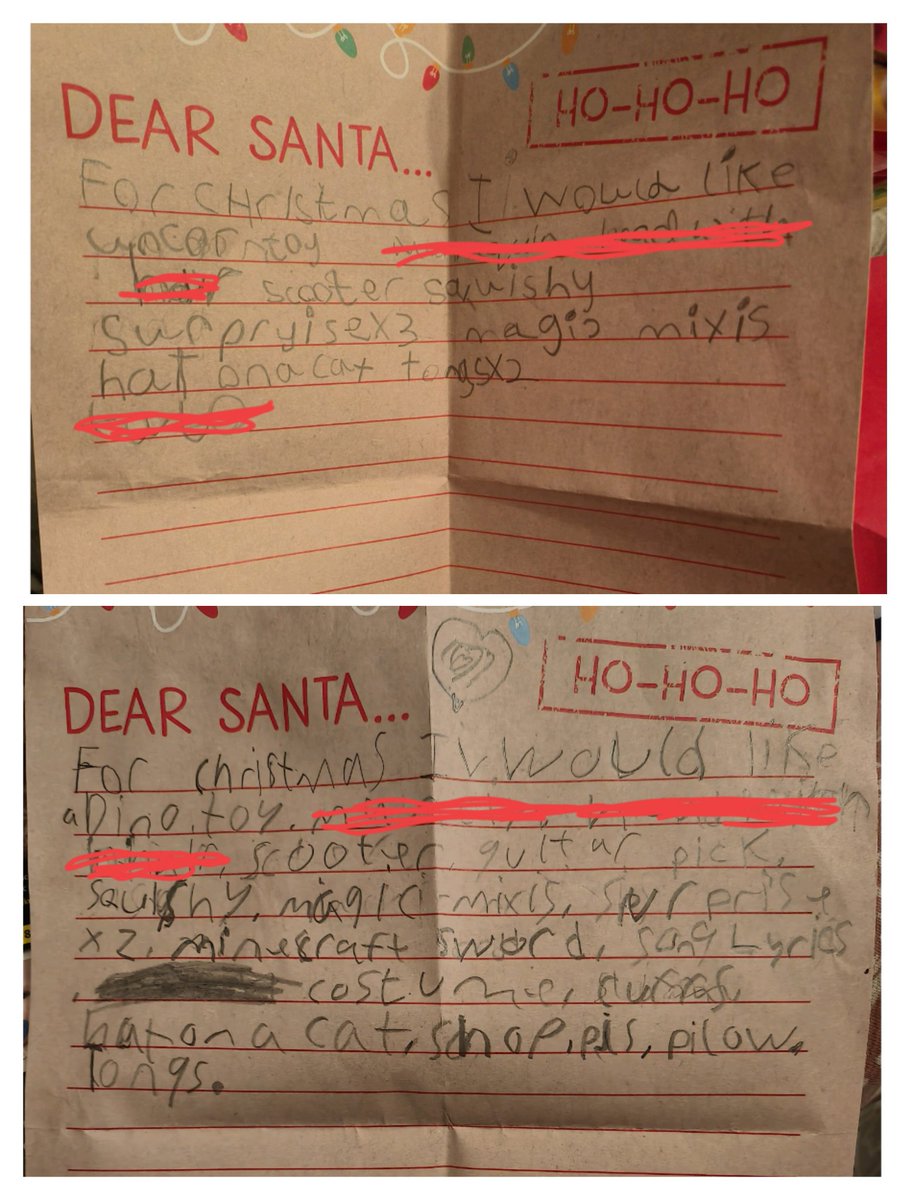 DEAR SANTA...
HO-HO-HO
For CHristmas I would like
toy
scooter squishy
surpryisex3 magic mixis
hat onacat tongsx2
DEAR SANTA...
HO-HO-HO
For christmas I would like
a Dino, toy,
, scooter, guitar pick,
squishy, magic-mixis, surprise
x2, minecraft sword, song Lyrics
, costume,
hat on a cat, shoppis, pilow,
Tongs.